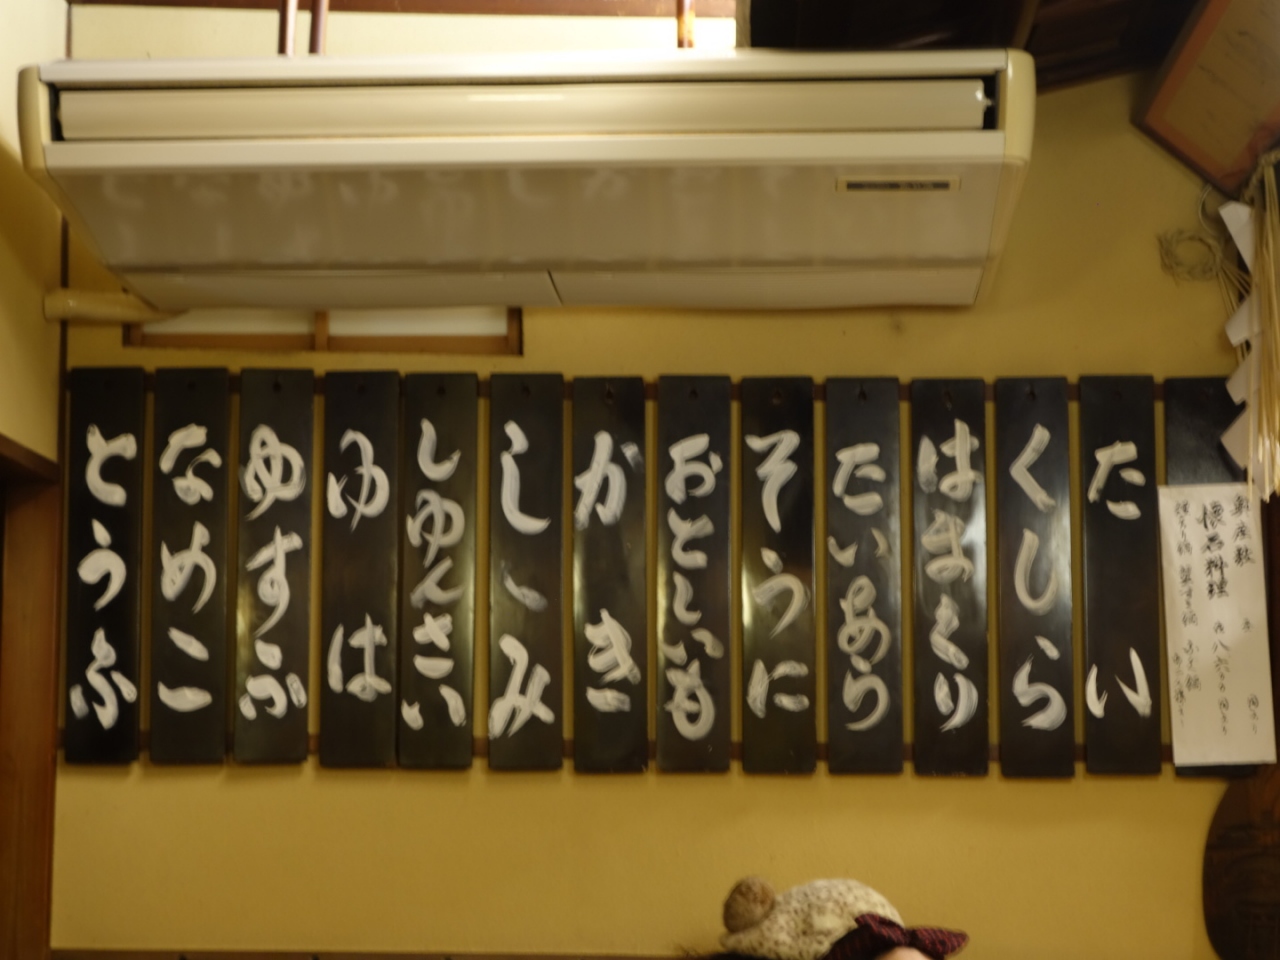 懐石料理
たい
くしら
はまくり
たいあら
そうに
おとしいも
かき
しゝみ
しゆんさい
ゆは
ゆすふ
なめこ
とうふ